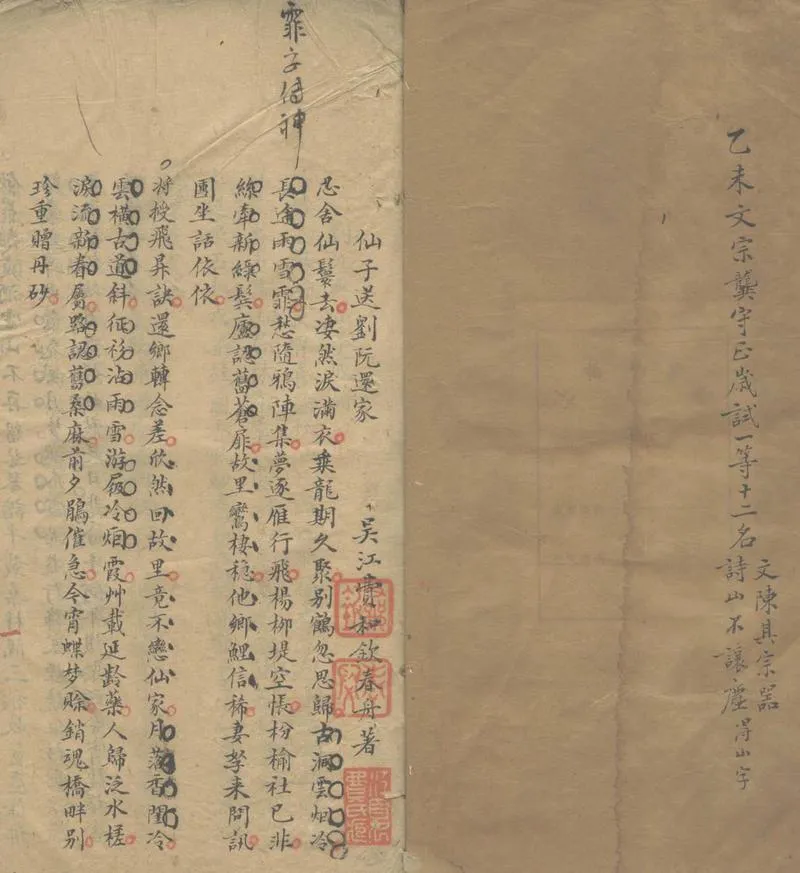 乙未文宗龔守正歲試一等十二名
文陳其宗器
詩山不讓塵得山字
霏字傳神
仙子送劉阮還家
吳江費和欽春舟著
忍舍仙鬟去凄然淚滿衣乘龍期久聚別鶴忽思歸古洞雲烟冷
長途雨雪霏愁隨鴉陣集夢逐雁行飛楊柳堤空悵枌榆社已非
絲牽新綠鬢廬認舊蒼扉故里鸞棲穩他鄉鯉信稀妻孥來問訊
團坐話依依
將授飛昇訣還鄉轉念差欣然回故里竟不戀仙家月落香閨冷
雲橫古道斜征衫沾雨雪游屐冷烟霞艸載延齡藥人歸泛水槎
淚流新眷屬路認舊桑麻前夕鵑催急今宵蝶夢賒銷魂橋畔別
珍重贈丹砂